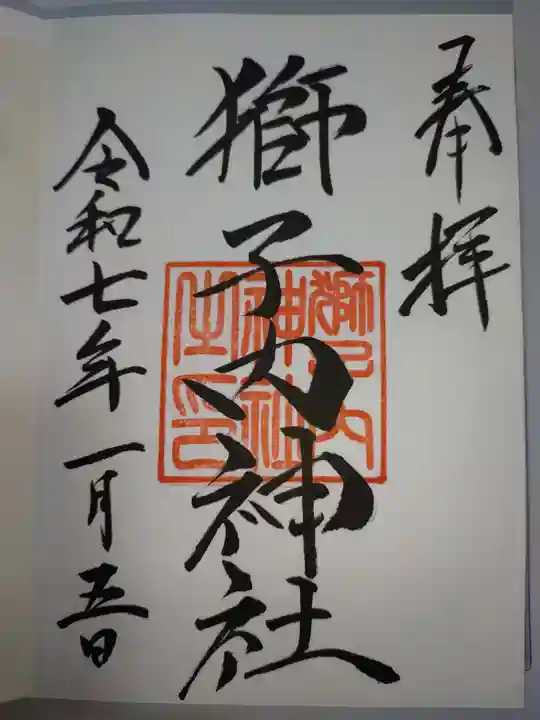 奉拝
獅子内神社
獅子内
神社
之印
令和七年一月五日